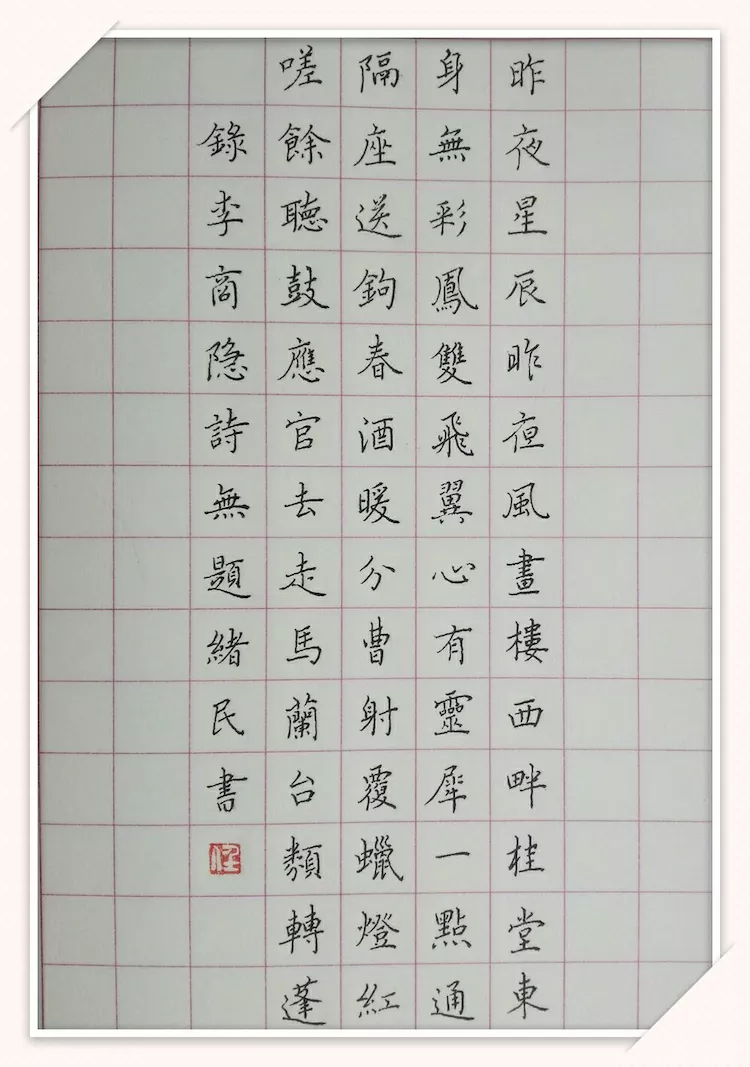 昨夜星辰昨夜風畫樓西畔桂堂東
身無彩鳳雙飛翼心有靈犀一點通
隔座送鉤春酒暖分曹射覆蠟燈紅
嗟餘聽鼓應官去走馬蘭台類轉蓬
錄李商隐詩無題緒民書